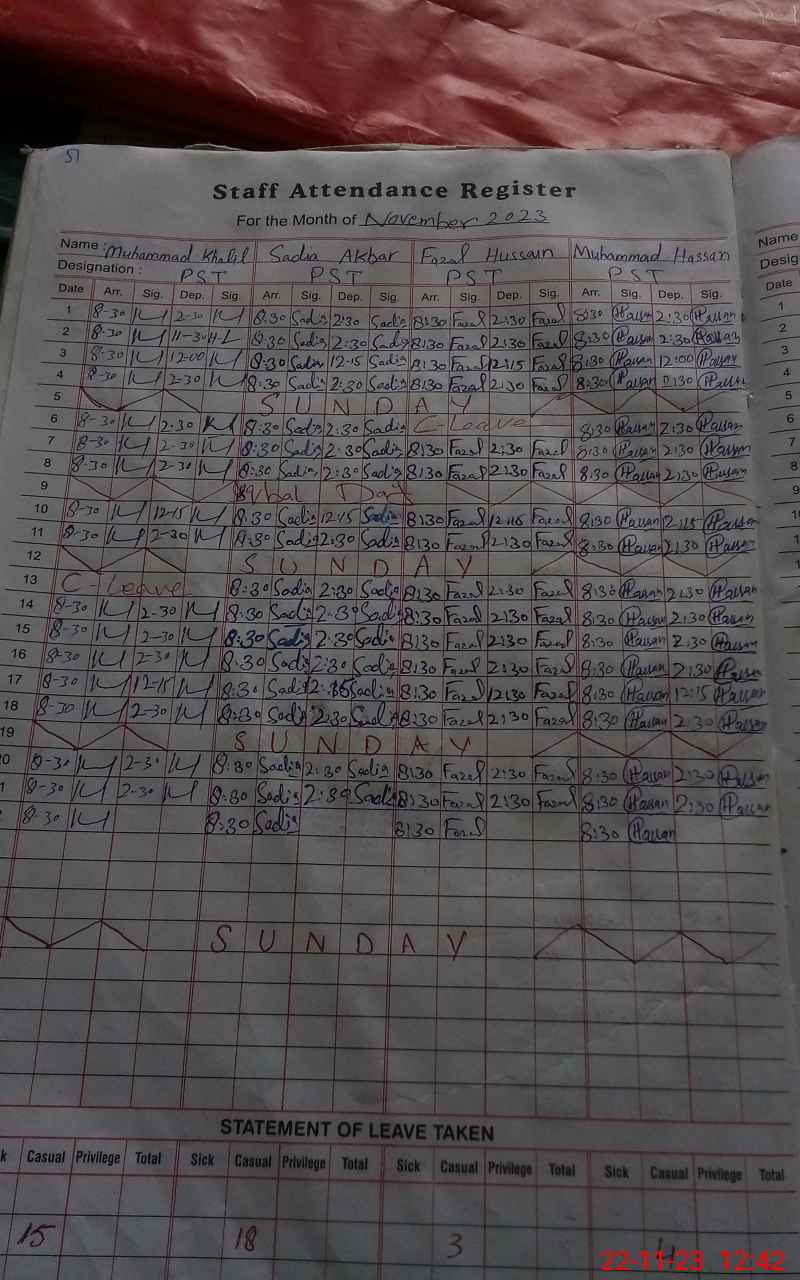 51
Staff Attendance Register
For the Month of November 2023
Name : Muhammad Khalil Sadia Akbar Fazal Hussain Muhammad Hassan Name
Designation : PST PST PST PST Desig
Date Arr. Sig. Dep. Sig. Arr. Sig. Dep. Sig. Arr. Sig. Dep. Sig. Arr. Sig. Dep. Sig. Date
1 8-30 2-30 8:30 Sadia 2:30 Sadia 8:30 Fazal 2:30 Fazal 8:30 Hassan 2:30 Hassan 1
2 8-30 8:30 Sadia 2:30 Sadia 8:30 Fazal 2:30 Fazal 8:30 Hassan 2:30 Hassan 2
3 8-30 12-00 8:30 Sadia 12-15 Sadia 8:30 Fazal 12:15 Fazal 8:30 Hassan 12:00 Hassan 3
4 8-30 2-30 8:30 Sadia 2:30 Sadia 8:30 Fazal 2:30 Fazal 8:30 Hassan Hassan 4
5 SUNDAY 5
6 8-30 2-30 8:30 Sadia 2:30 Sadia C-Leave 8:30 Hassan 2:30 Hassan 6
7 8-30 2-30 8:30 Sadia 2:30 Sadia 8:30 Fazal 2:30 Fazal 8:30 Hassan 2:30 Hassan 7
8 8-30 2-30 8:30 Sadia 2:30 Sadia 8:30 Fazal 2:30 Fazal 8:30 Hassan 2:30 Hassan 8
9 9
10 8-30 12-15 8:30 Sadia 12:15 Sadia 8:30 Fazal Fazal 8:30 Hassan Hassan 10
11 8-30 2-30 8:30 Sadia 2:30 Sadia 8:30 Fazal 2:30 Fazal 8:30 Hassan 2:30 Hassan 11
12 SUNDAY
13 C-Leave 8:30 Sadia 2:30 Sadia 8:30 Fazal 2:30 Fazal 8:30 Hassan 2:30 Hassan
14 8-30 2-30 8:30 Sadia 2:30 Sadia 8:30 Fazal 2:30 Fazal 8:30 Hassan 2:30 Hassan
15 8-30 2-30 8:30 Sadia 2:30 Sadia 8:30 Fazal 2:30 Fazal 8:30 Hassan 2:30 Hassan
16 8-30 2-30 8:30 Sadia 2:30 Sadia 8:30 Fazal 2:30 Fazal 8:30 Hassan 2:30 Hassan
17 8-30 12-15 8:30 Sadia Sadia 8:30 Fazal 12:30 Fazal 8:30 Hassan 12:15 Hassan
18 8-30 2-30 8:30 Sadia 2:30 Sadia 8:30 Fazal 2:30 Fazal 8:30 Hassan 2:30 Hassan
19 SUNDAY
0 8-30 2-30 8:30 Sadia 2:30 Sadia 8:30 Fazal 2:30 Fazal 8:30 Hassan 2:30 Hassan
1 8-30 2-30 8:30 Sadia 2:30 Sadia 8:30 Fazal 2:30 Fazal 8:30 Hassan 2:30 Hassan
8-30 8:30 Sadia 8:30 Fazal 8:30 Hassan
SUNDAY
STATEMENT OF LEAVE TAKEN
k Casual Privilege Total Sick Casual Privilege Total Sick Casual Privilege Total Sick Casual Privilege Total
15 18 3 4
22-11-23 12:42